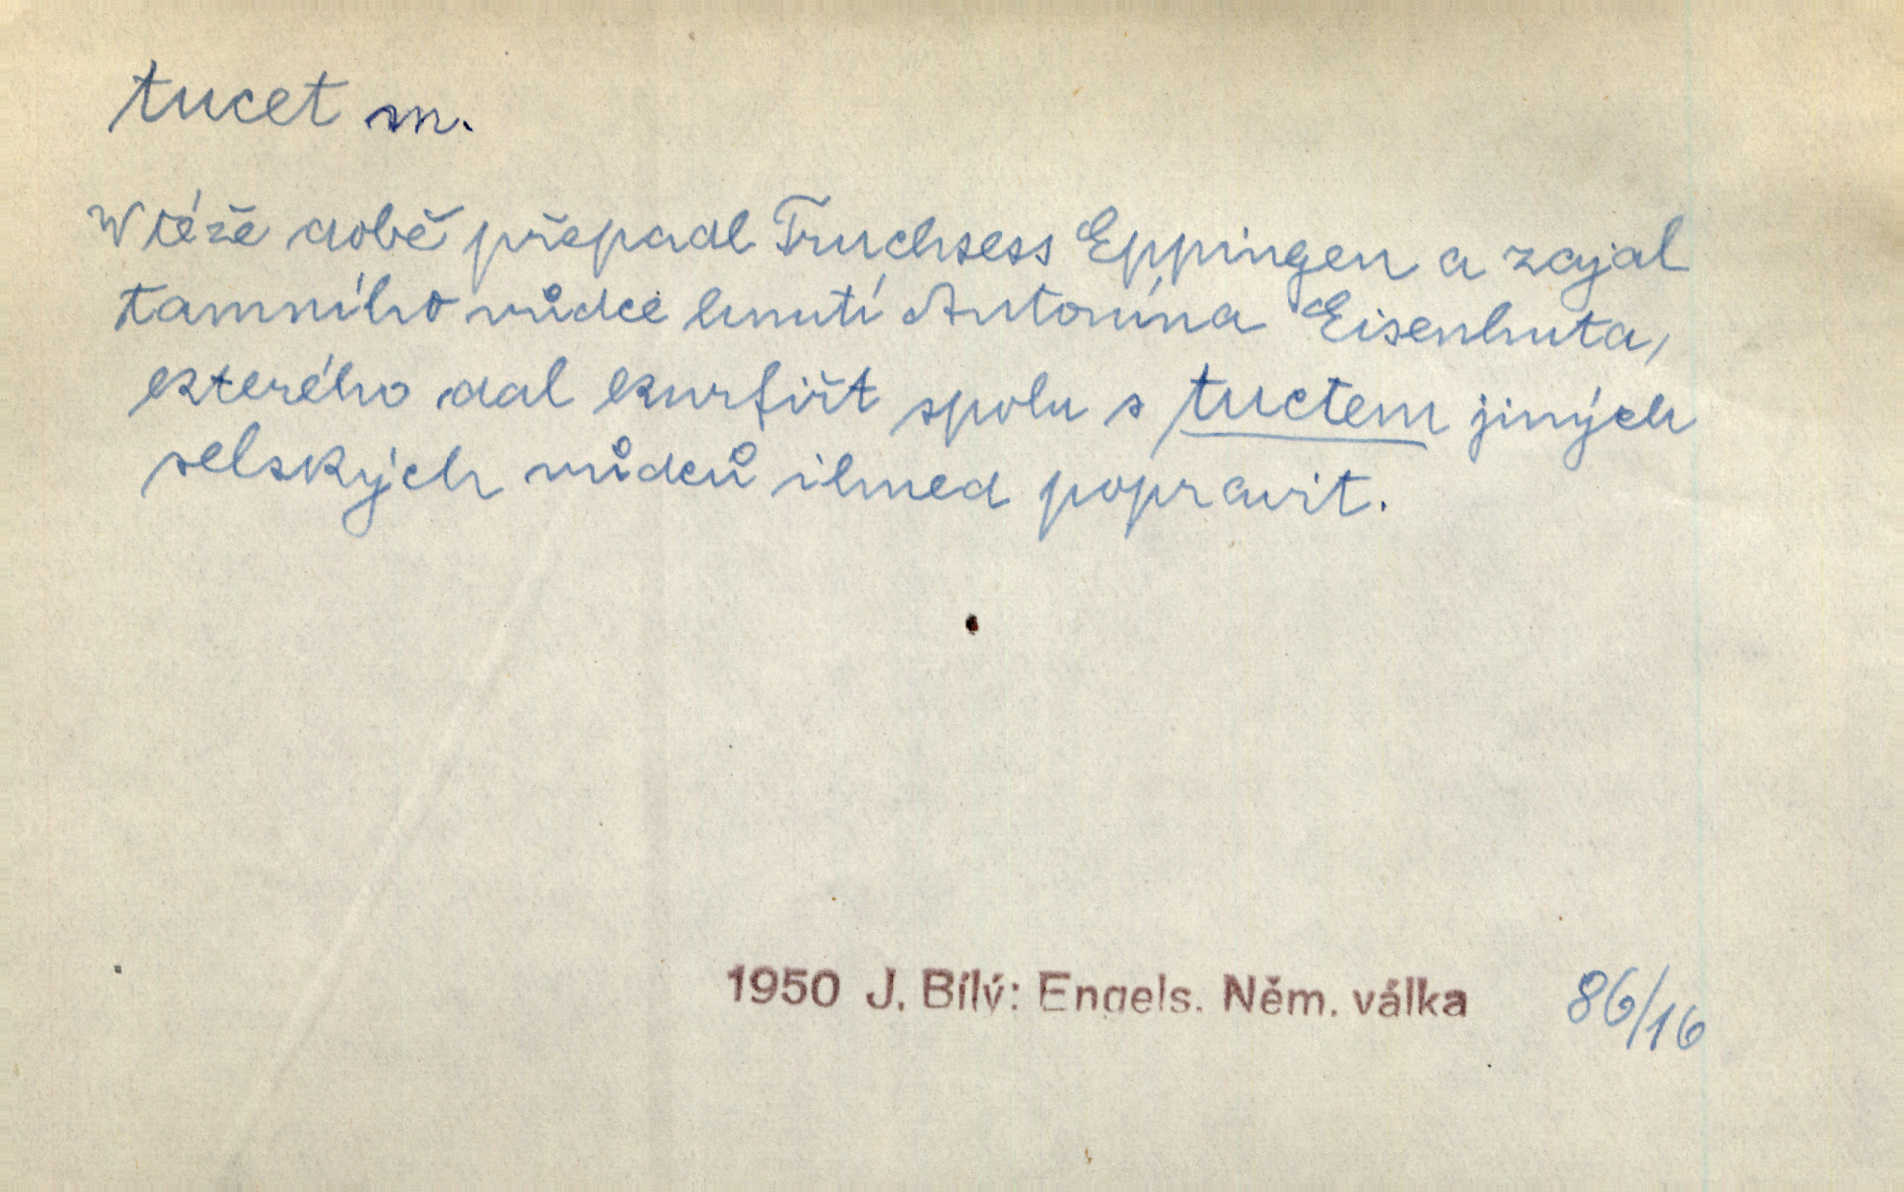 tucet m.
V téže době přepadl Truchsess Eppingen a zajal
tamního vůdce hnutí Antonína Eisenhuta,
kterého dal kurfiřt spolu s tuctem jiných
selských vůdců ihned popravit.
1950 J. Bílý: Engels. Něm. válka 86/16